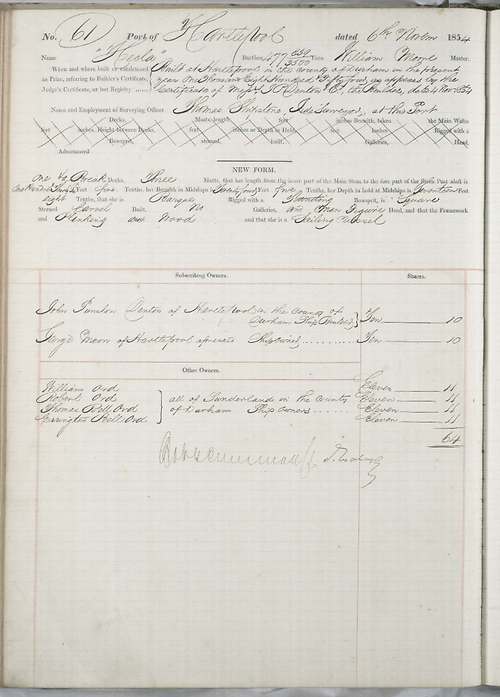 No. 61 Port of Hartlepool dated 6th Novem 1854
Name "Hecla" Burthen, 277 650/3500 Tons William Moore Master.
When and where built or condemned Built at Hartlepool in the county of Durham in the present
as Prize, referring to Builder's Certificate, year One Thousand Eight Hundred Fifty four, as appears by the
Judge's Certificate, or last Registry Certificate of Messrs J P Denton & Co the Builders, dated 4 Nov 1854
Name and Employment of Surveying Officer Thomas Tide Surveyor, at this Port
Decks, Masts, length, feet inches Breadth, taken the Main Wales
feet inches. Height Between Decks, feet inches or Depth in Hold, feet inches Rigged with a
Bowsprit, sterned, built, Galleries, Head,
Admeasured
NEW FORM.
one & Break Decks, Three Masts, that her length from the inner part of the Main Stem to the fore part of the Stern Post aloft is
One Hundred Feet five Tenths, her Breadth in Midships is Twenty four Feet five Tenths, her Depth in hold at Midships is Seventeen Feet
eight Tenths, that she is Barque Rigged with a Standing Bowsprit, is Square
Sterned Carvel Built, No Galleries, and Man Figure Head, and that the Framework
and Planking are Wood and that she is a Sailing Vessel
Subscribing Owners. Shares.
John Punshon Denton of Hartlepool in the County of
Durham Ship Builder } Ten 10
George Moore of Hartlepool aforesaid Shipowner Ten 10
Other Owners.
William Ord Eleven 11
Robert Ord } all of Sunderland in the County Eleven 11
Thomas Bell Ord of Durham Ship owners Eleven 11
Errington Bell Ord Eleven 11
64